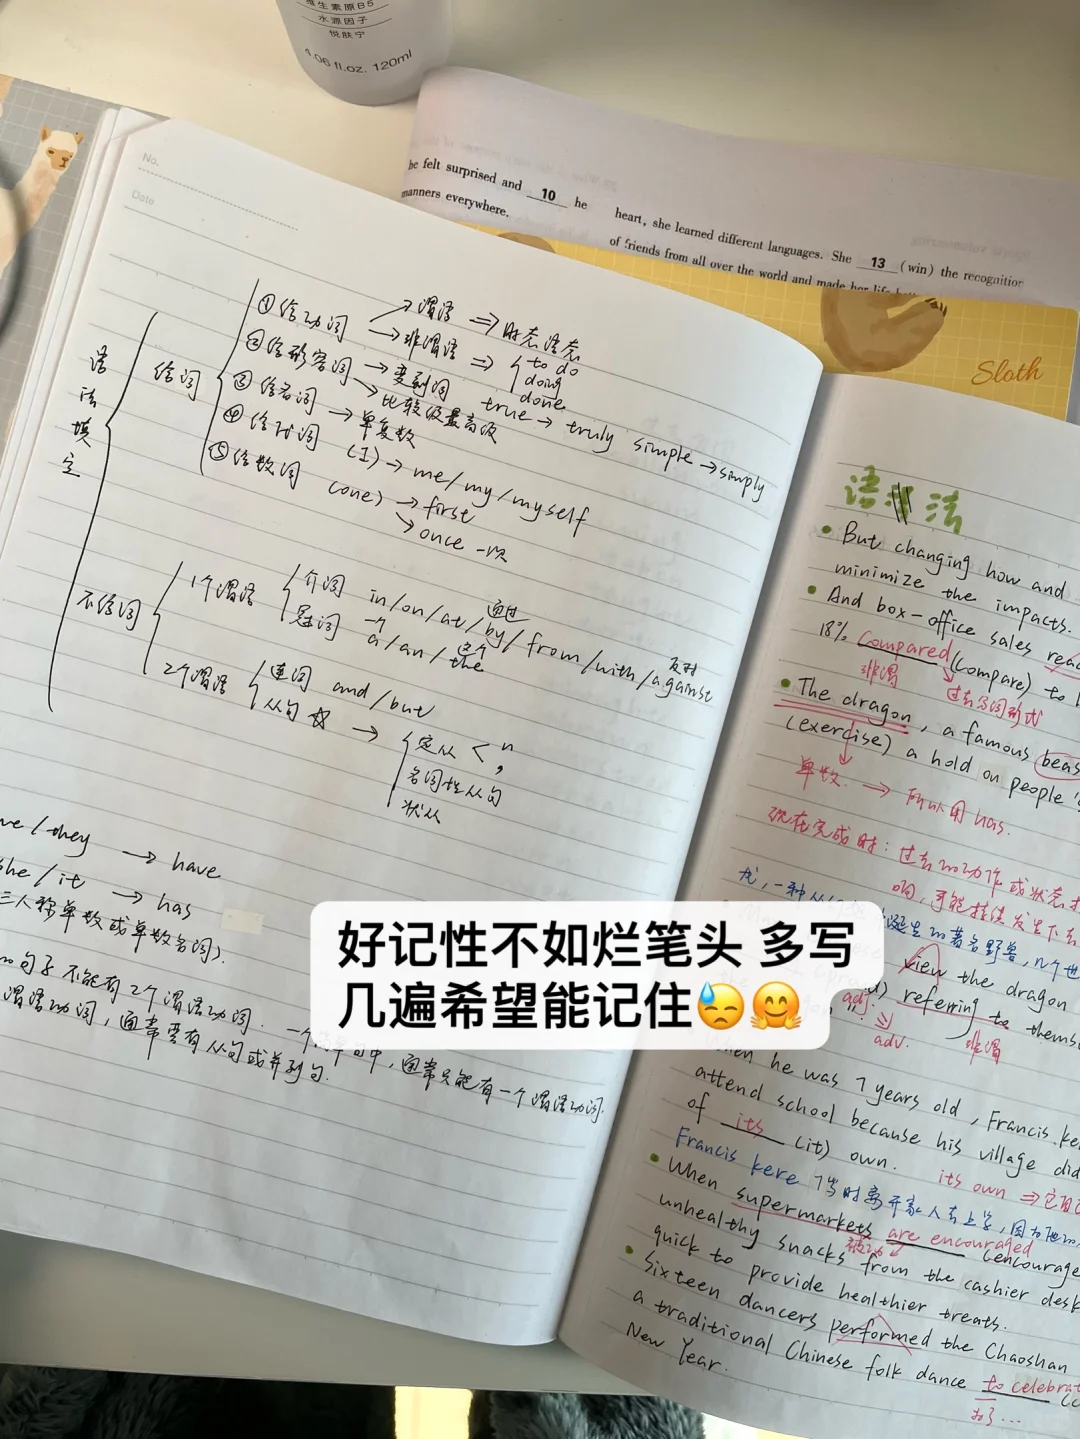 维生素原B5
水源因子
悦肤宁
4.06 fl.oz. 120ml
he felt surprised and 10 he
manners everywhere.
heart, she learned different languages. She 13 (win) the recognition
of friends from all over the world and made her life
Sloth
No.
Date
语法填空
给词
①给动词 → 谓语 ⇒ 时态语态
→ 非谓语 ⇒ to do
doing
done
②给形容词 → 变副词 true → truly simple → simply
→ 比较级最高级
③给名词 → 单复数
④给代词 (I) → me/my/myself
⑤给数词 (one) → first
→ once 一次
不给词
1个谓语
介词 in/on/at/by/from/with/against
通过
反对
冠词 a/an/the
一个
这个
2个谓语
连词 and/but
从句 ☆ → 定从 < n
,
名词性从句
状从
we/they → have
she/it → has
三人称单数或单数名词).
句子不能有2个谓语动词. 一个简单句中，通常只能有一个谓语动词.
谓语动词，通常要有从句或并列句.
好记性不如烂笔头 多写
几遍希望能记住😓🤗
语法
But changing how and
minimize the impacts.
And box-office sales
18% Compared (compare) to
非谓
过去分词形式
The dragon, a famous beas
(exercise) a hold on people's
单数. → 所以用has.
现在完成时: 过去的动作或状态
响，可能持续发生下去
龙，一种从
诞生的著名野兽，
view the dragon
referring to themse
adj.
adv.
非谓
When he was 7 years old, Francis ke
attend school because his village did
of its (it) own.
its own ⇒ 它自己
Francis kere 7岁时离开家人去上学，因为他的
When supermarkets are encouraged (encourage
被动
unhealthy snacks from the cashier desk
quick to provide healthier treats.
Sixteen dancers performed the Chaoshan
a traditional Chinese folk dance to celebrat
New Year.
为了...